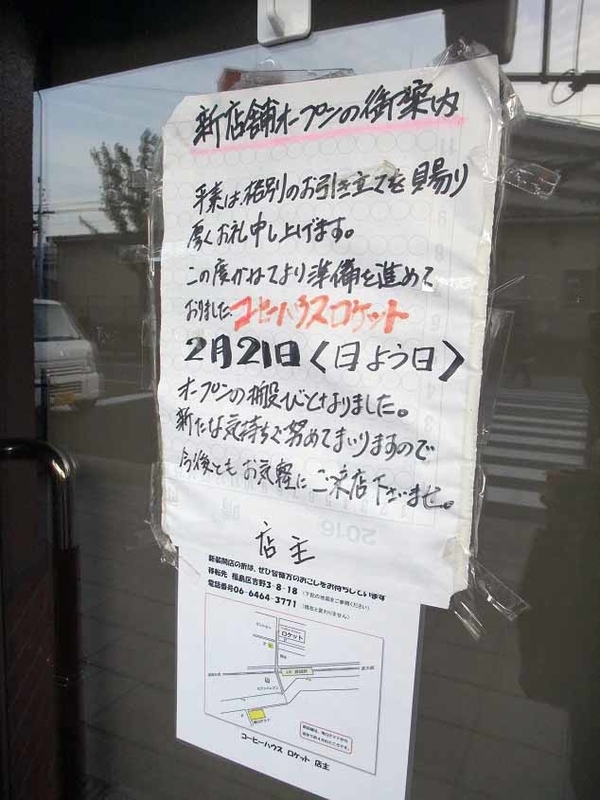 新店舗オープンの御案内
平素は格別のお引き立てを賜り
厚くお礼申し上げます。
この度かねてより準備を進めて
おりました。コーヒーハウスロケット
2月21日〈日よう日〉
オープンの搬びとなりました。
新たな気持ちで努めてまいりますので
今後ともお気軽にご来店下さいませ。
店主
2016
新装開店の折は、ぜひ皆様方のおこしをお待ちしています
移転先 福島区吉野3-8-18 (下記の地図をご参照ください)
電話番号06-6464-3771 (現在と変わりません)
ロケット
コーヒーハウス ロケット 店主